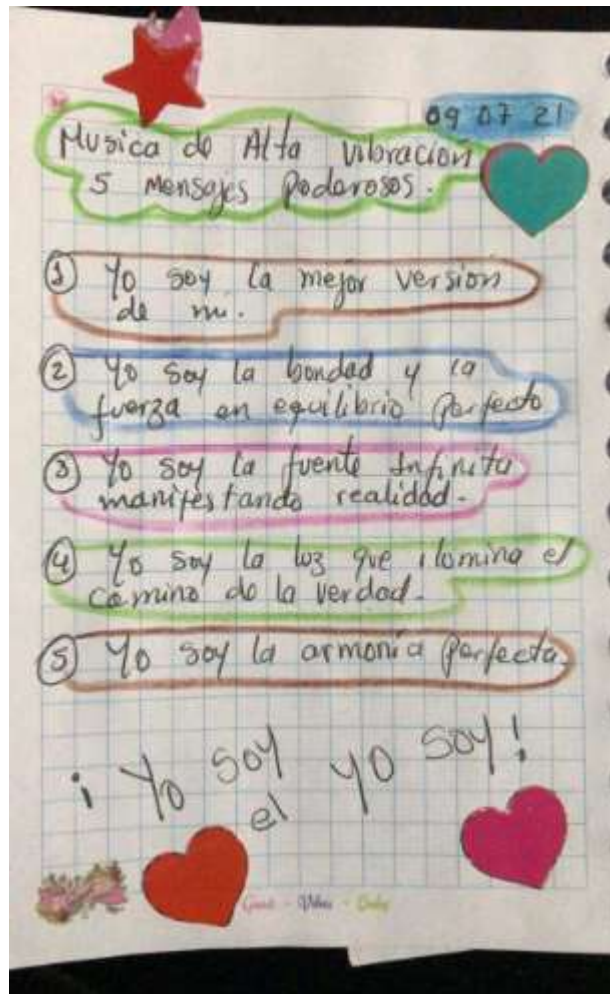 09 07 21
Musica de Alta vibración
5 Mensajes Poderosos.
1 Yo soy la mejor version
de mi.
2 Yo soy la bondad y la
fuerza en equilibrio Perfecto
3 Yo soy la fuente Infinita
manifestando realidad.
4 Yo soy la luz que ilomina el
camino de la verdad.
5 Yo soy la armonía Perfecta.
¡ Yo soy el yo soy!
Good - Vibes - Only